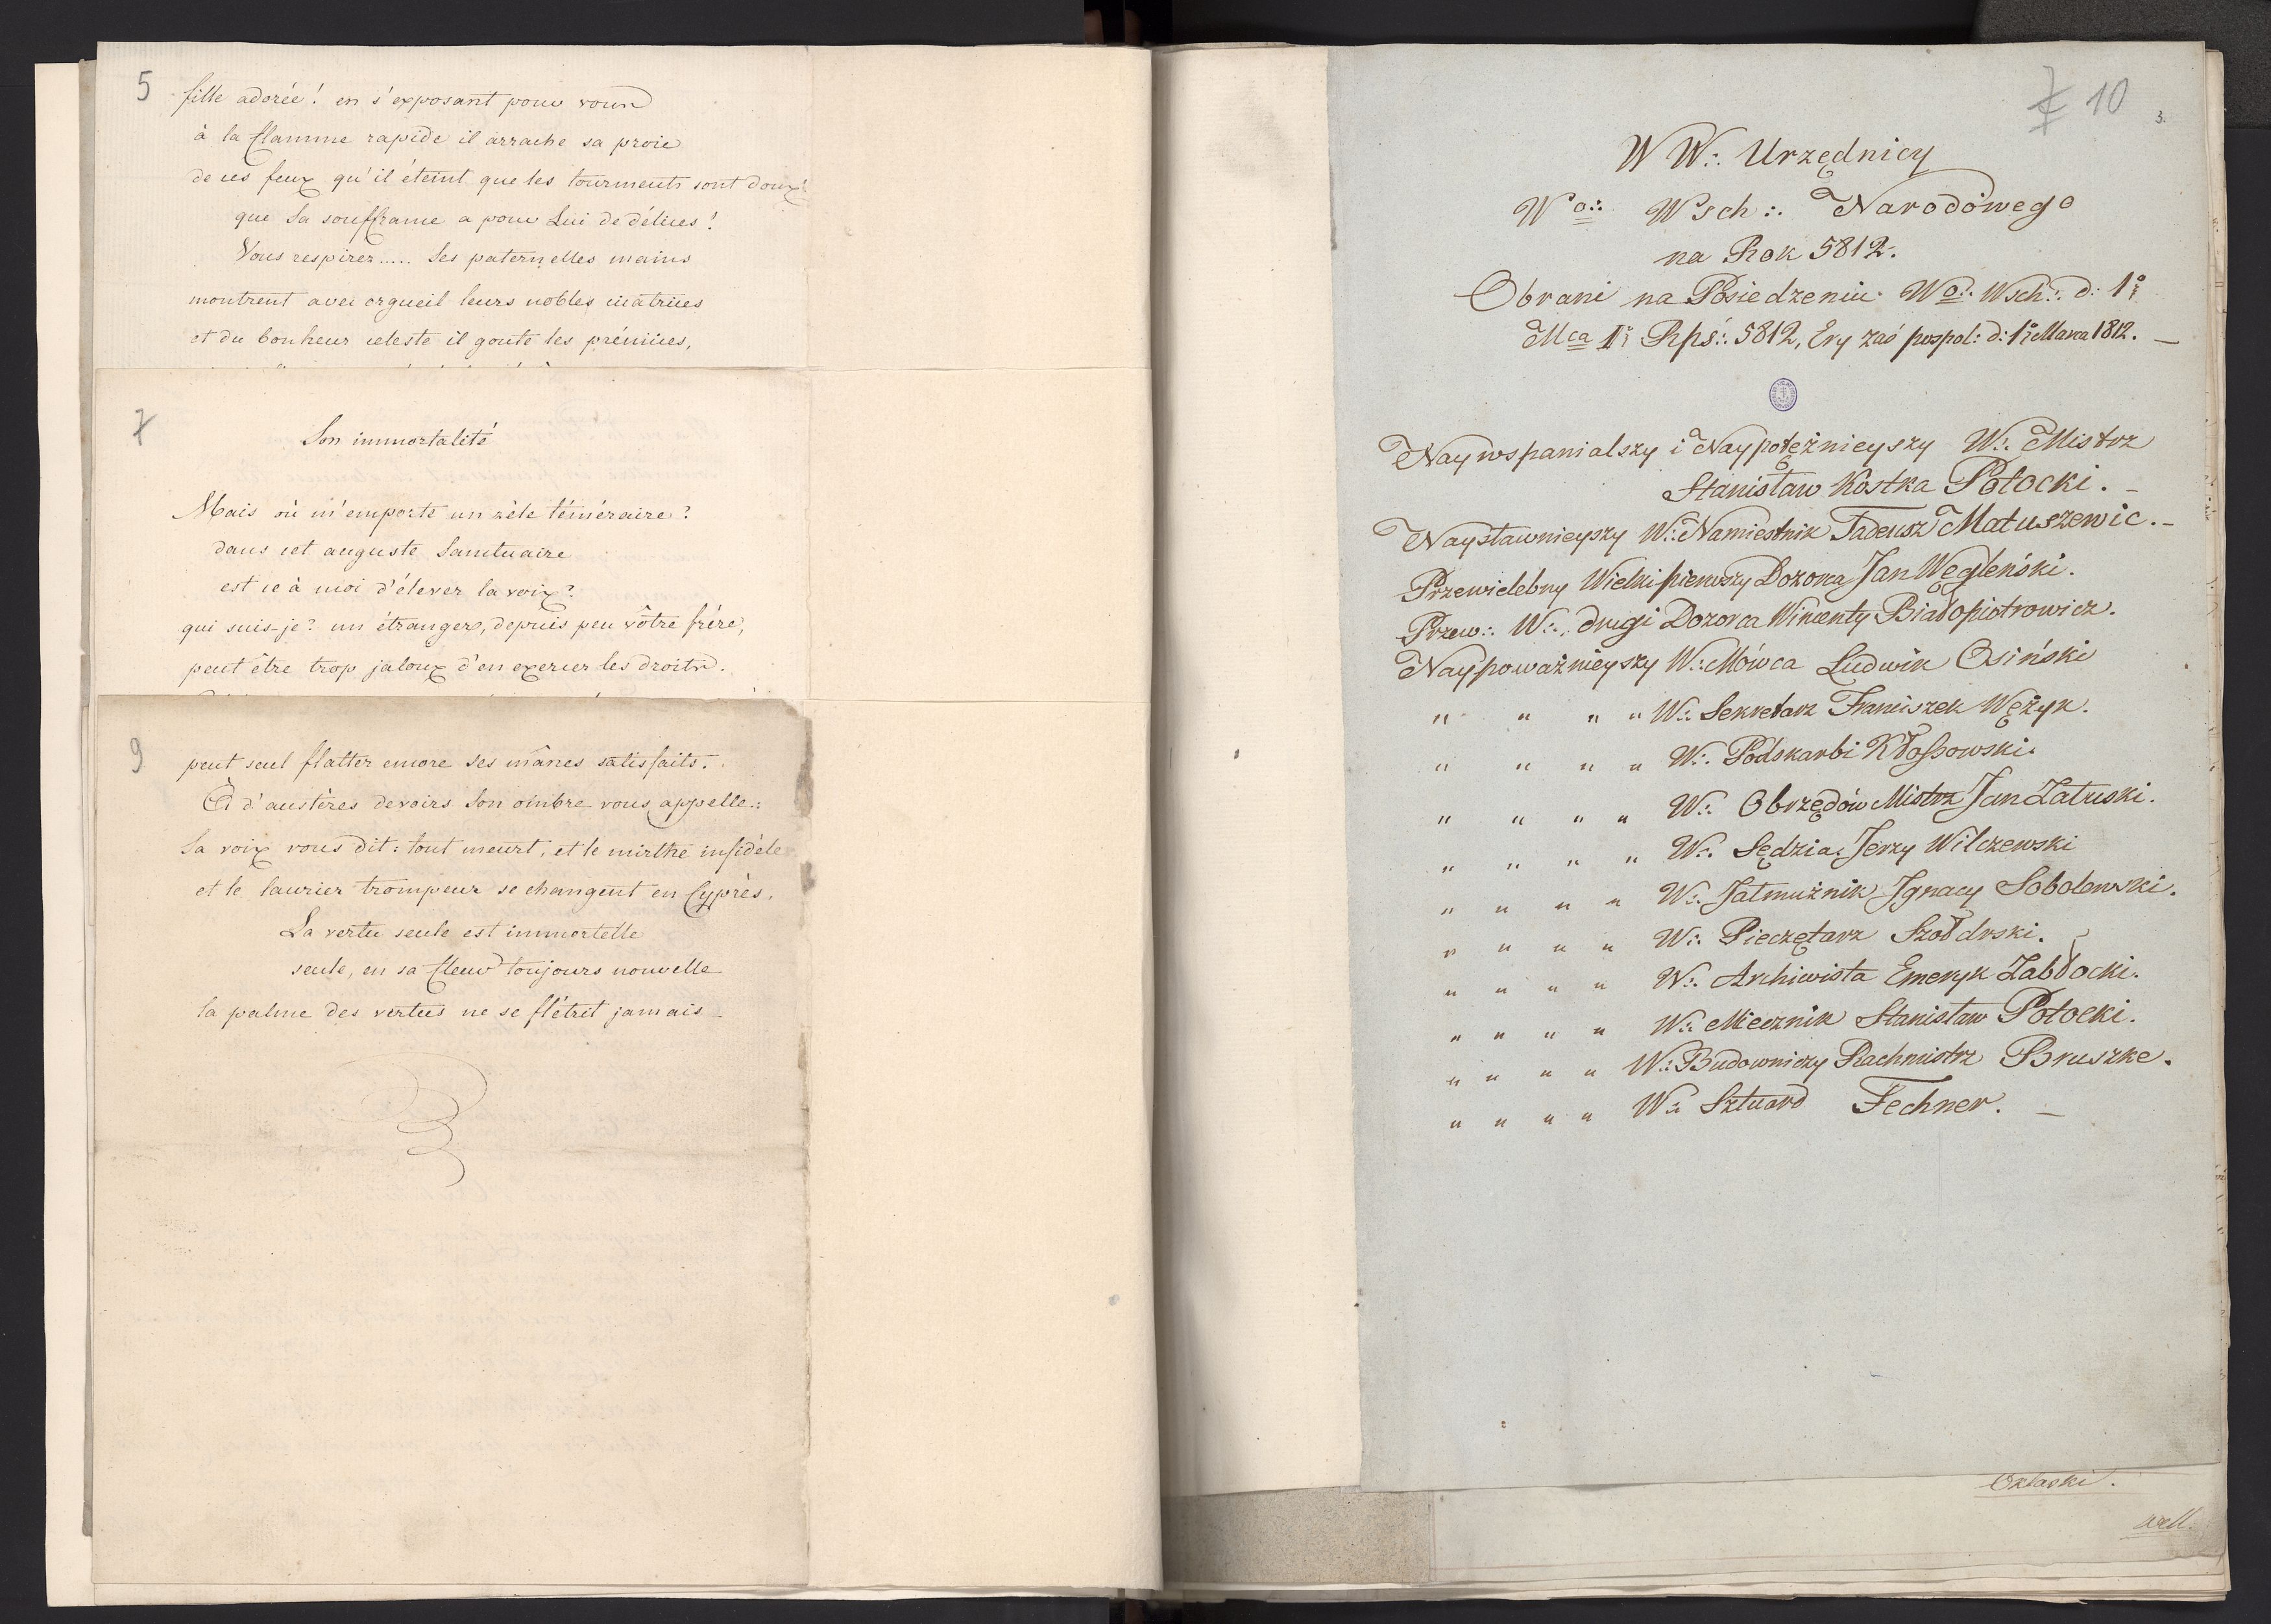 5
fille adorée! en s'exposant pour vous
à la flamme rapide il arrache sa proie
de ces feux qu'il éteint que les tourments sont doux!
que sa souffrance a pour Lui de délices!
Vous respirez..... ses paternelles mains
montrent avec orgueil leurs nobles cicatrices
et du bonheur celeste il goute les prémices,
7
Son immortalité
Mais où m'emporte un zèle téméraire?
dans cet auguste Sanctuaire
est ce à moi d'élever la voix?
qui suis-je? un étranger, depuis peu vôtre frére,
peut être trop jaloux d'en exercer les droits.
9
peut seul flatter encore ses mânes satisfaits.
à d'austères devoirs son ombre vous appelle:
Sa voix vous dit: tout meurt, et le mirthe infidèle
et le laurier trompeur se changent en Cyprès.
La vertu seule est immortelle
seule, en sa fleur toujours nouvelle
la palme des vertus ne se flétrit jamais
10
3.
W W∴ Urzędnicy
Wo∴ Wsch∴ Narodowego
na Rok 5812.
Obrani na Posiedzeniu Wo∴ Wsch∴ d: 1o
Mca Io Rps∴ 5812, Ery zaś pospol: d: 1o Marca 1812. —
Naywspanialszy i Naypotężnieyszy W∴ Mistrz
Stanisław Kostka Potocki. —
Naysławnieyszy W∴ Namiestnik Tadeusz Matuszewic. —
Przewielebny Wielki pierwszy Dozorca Jan Węgleński.
Przew∴ W∴ drugi Dozorca Wincenty Białopiotrowicz.
Naypoważnieyszy W∴ Mówca Ludwik Osiński
" " " " W∴ Sekretarz Franciszek Wężyk.
" " " " W∴ Podskarbi Kłossowski.
" " " " W∴ Obrzędów Mistrz Jan Załuski.
" " " " W∴ Sędzia Jerzy Wilczewski
" " " " W∴ Jałmużnik Ignacy Sobolewski.
" " " " W∴ Pieczętarz Szołdrski.
" " " " W∴ Archiwista Emeryk Zabłocki.
" " " " W∴ Miecznik Stanisław Potocki.
" " " " W∴ Budowniczy Rachmistrz Bruszke.
" " " " W∴ Sztuard Fechner. —
Oklaski.